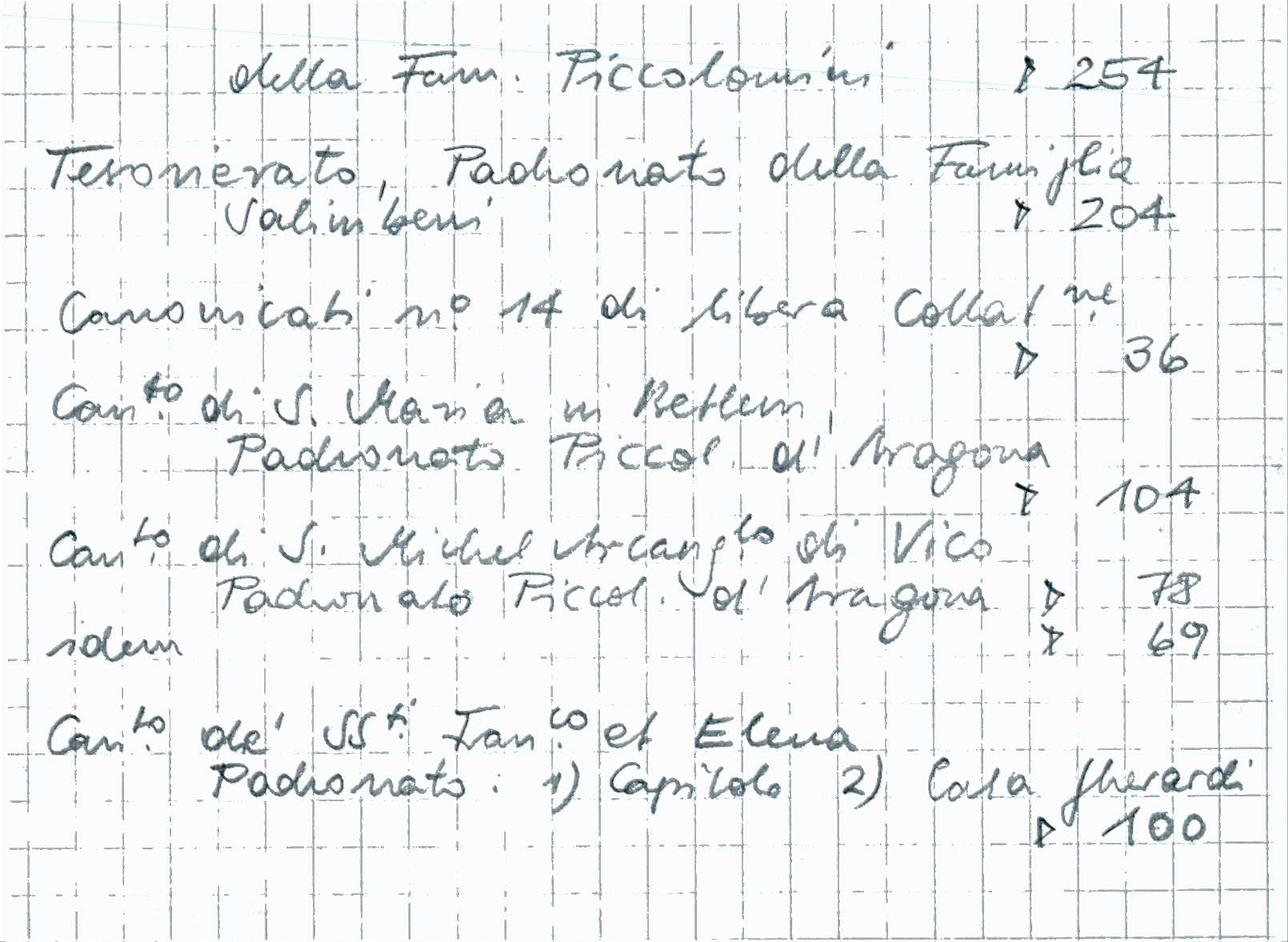 della Fam. Piccolomini ▷ 254
Tesorierato, Padronato della Famiglia
Salimbeni ▷ 204
Canonicati nº 14 di libera Collat.ne
▷ 36
Can.to di S. Maria in Betlem,
Padronato Piccol. d'Aragona
▷ 104
Can.to di S. Michel Arcang.lo di Vico
Padronato Piccol. d'Aragona ▷ 78
idem ▷ 69
Can.to de' SS.ti Fran.co et Elena
Padronato: 1) Capitolo 2) Casa Gherardi
▷ 100